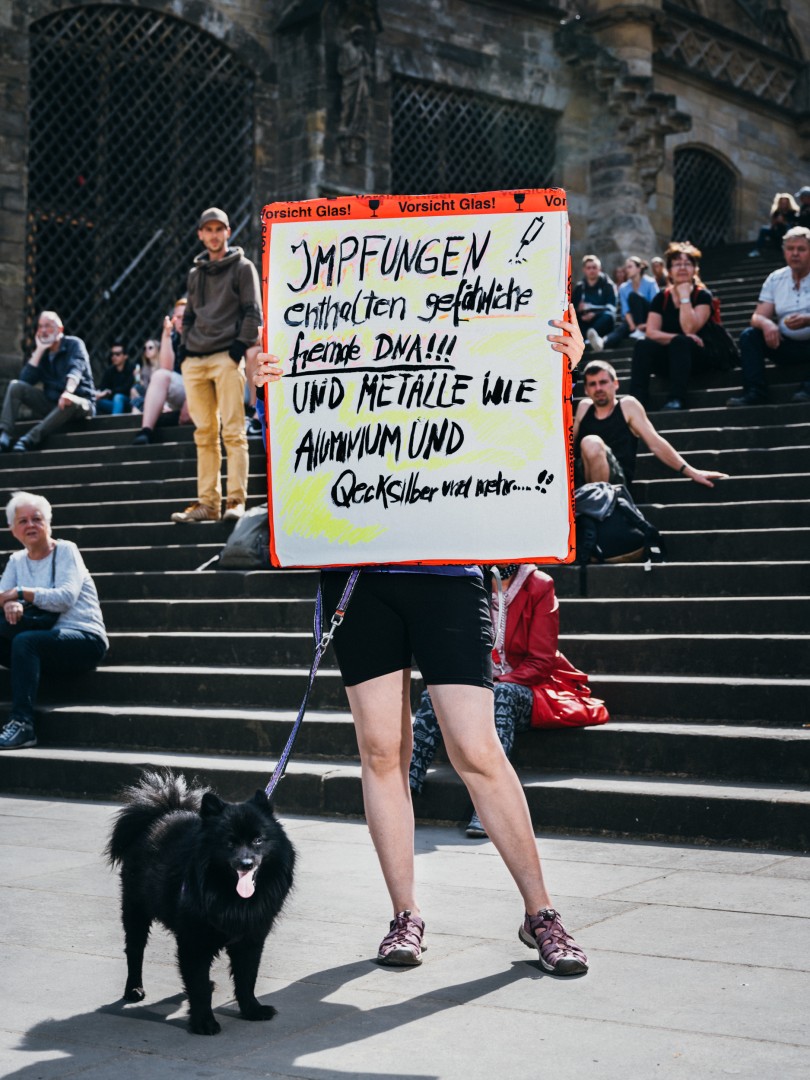 Vorsicht Glas! Vorsicht Glas! Vor
IMPFUNGEN
enthalten gefährliche
fremde DNA!!!
UND METALLE WIE
ALUMINIUM UND
Qecksilber und mehr....!!